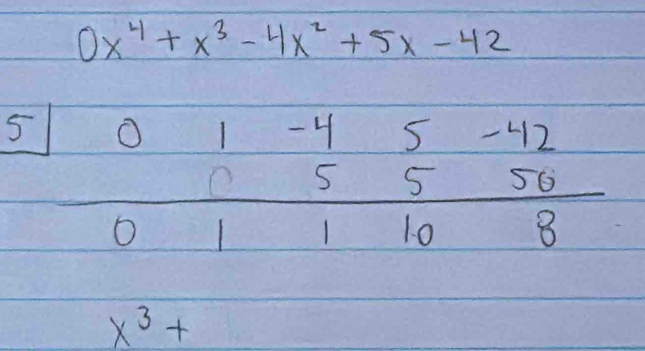 0x⁴ + x³ - 4x² + 5x - 42
5 0 1 -4 5 -42
0 5 5 50
0 1 1 10 8
x³ +